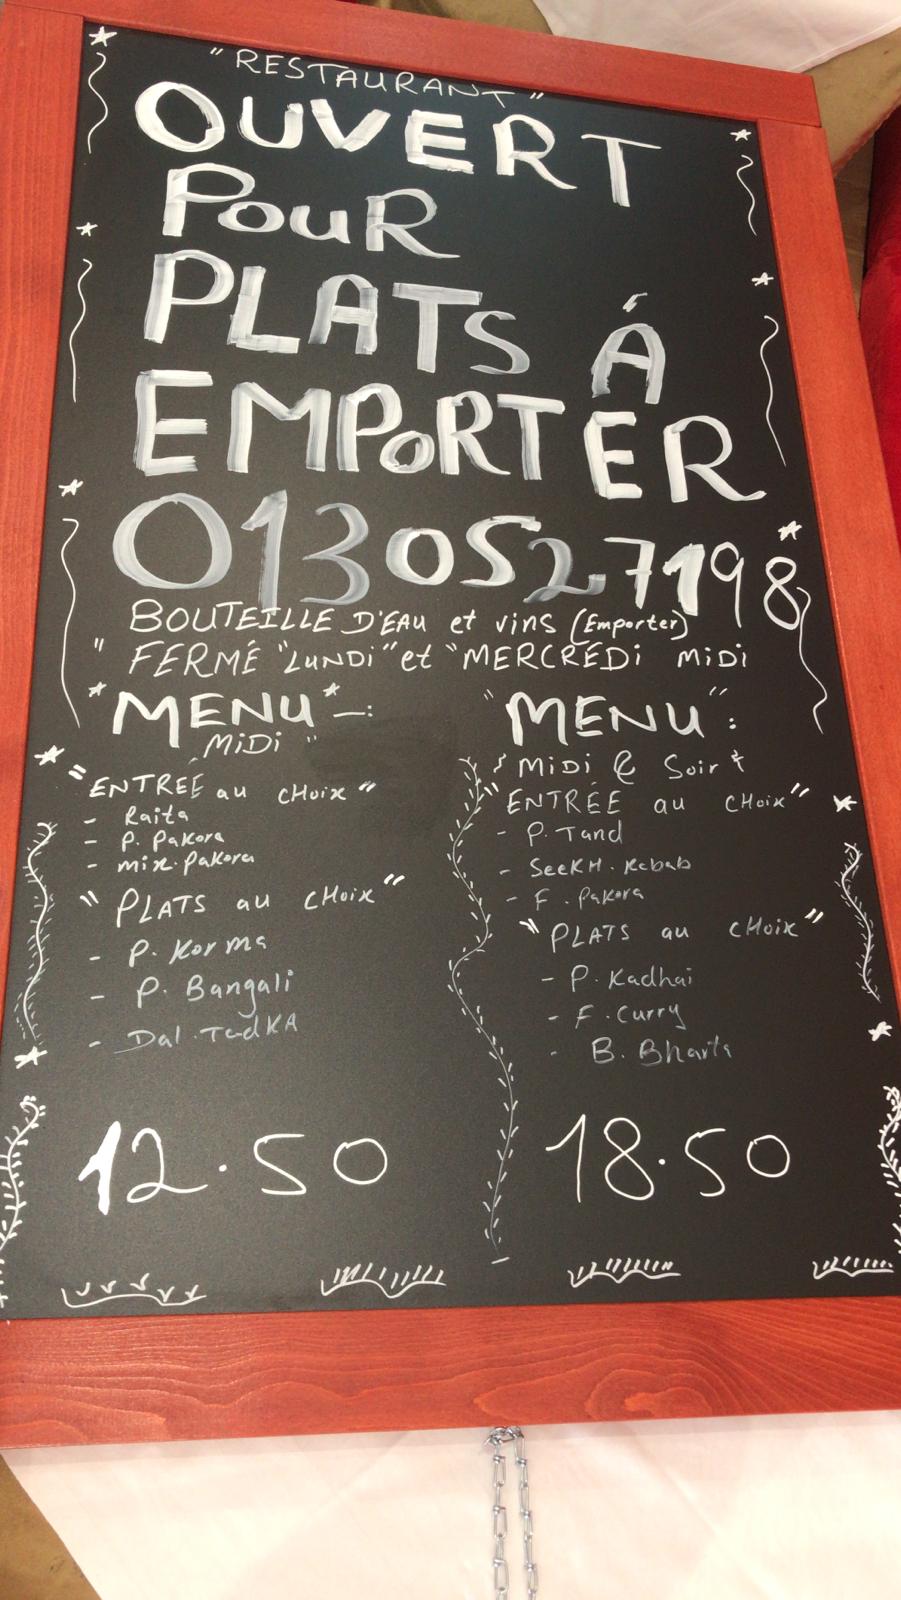 "RESTAURANT"
OUVERT
PouR
PLATS Á
EMPoRTER
0130527198
BOUTEILLE D'EAU et vins (Emporter)
"FERMÉ "LUNDi" et "MERCRÉDi MiDi
"MENU" —:
MiDi "
"ENTREÉ au CHoix"
- Raita
- P. Pakora
- mix. pakora
"PLATS au CHoix"
- P. Korma
- P. Bangali
- Dal. TadKA
12.50
"MENU":
MiDi & Soir
"ENTRÉE au CHoix"
- P. Tand
- SeeKH. Kebab
- F. Pakora
"PLATS au CHoix"
- P. Kadhai
- F. Curry
- B. Bharta
18.50